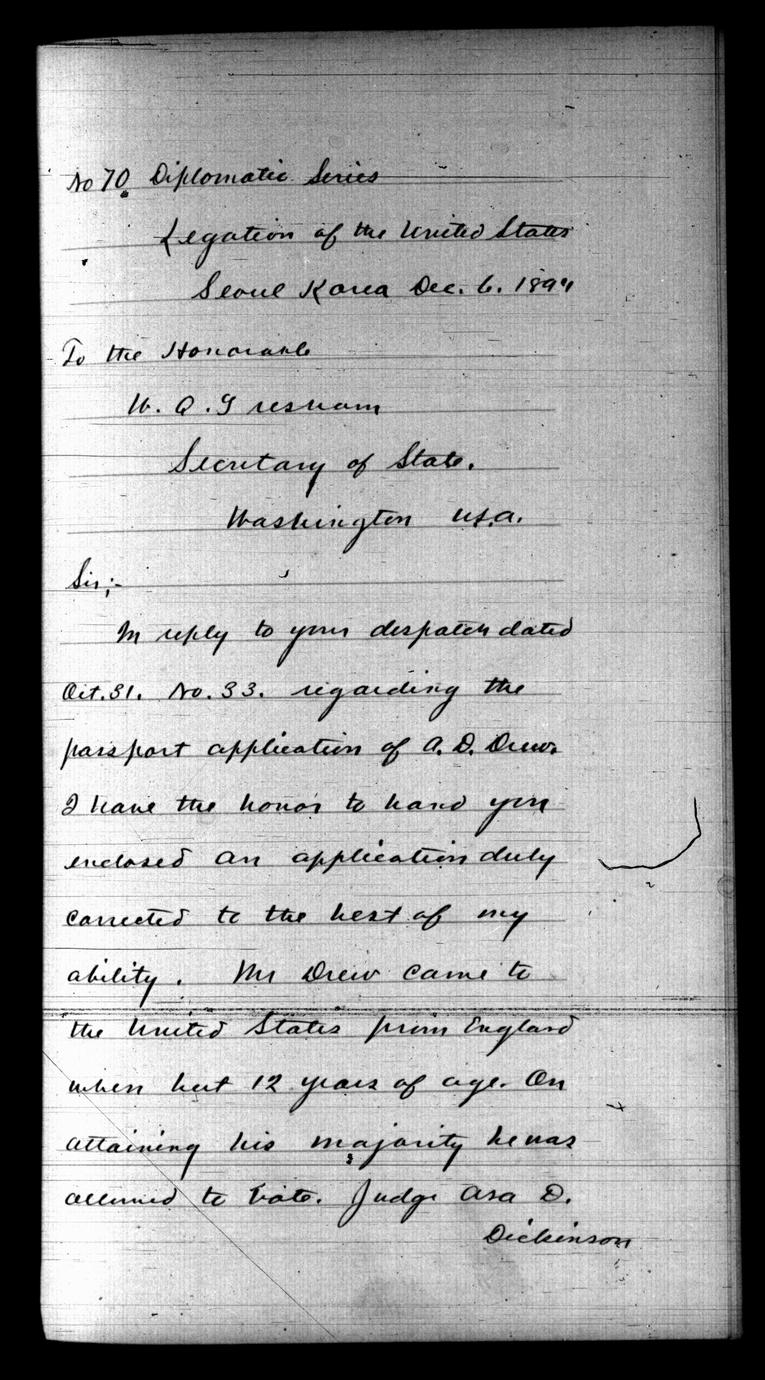 No 70 Diplomatic Series
Legation of the United States
Seoul Korea Dec. 6. 1894
To the Honorable
W. Q. Gresham
Secretary of State.
Washington U.S.A.
Sir;-
In reply to your despatch dated
Oct. 31. No. 33. regarding the
passport application of A. D. Drew.
I have the honor to hand you
enclosed an application duly
corrected to the best of my
ability. Mr Drew came to
the United States from England
when but 12 years of age. On
attaining his majority he was
allowed to vote. Judge Asa D.
Dickinson